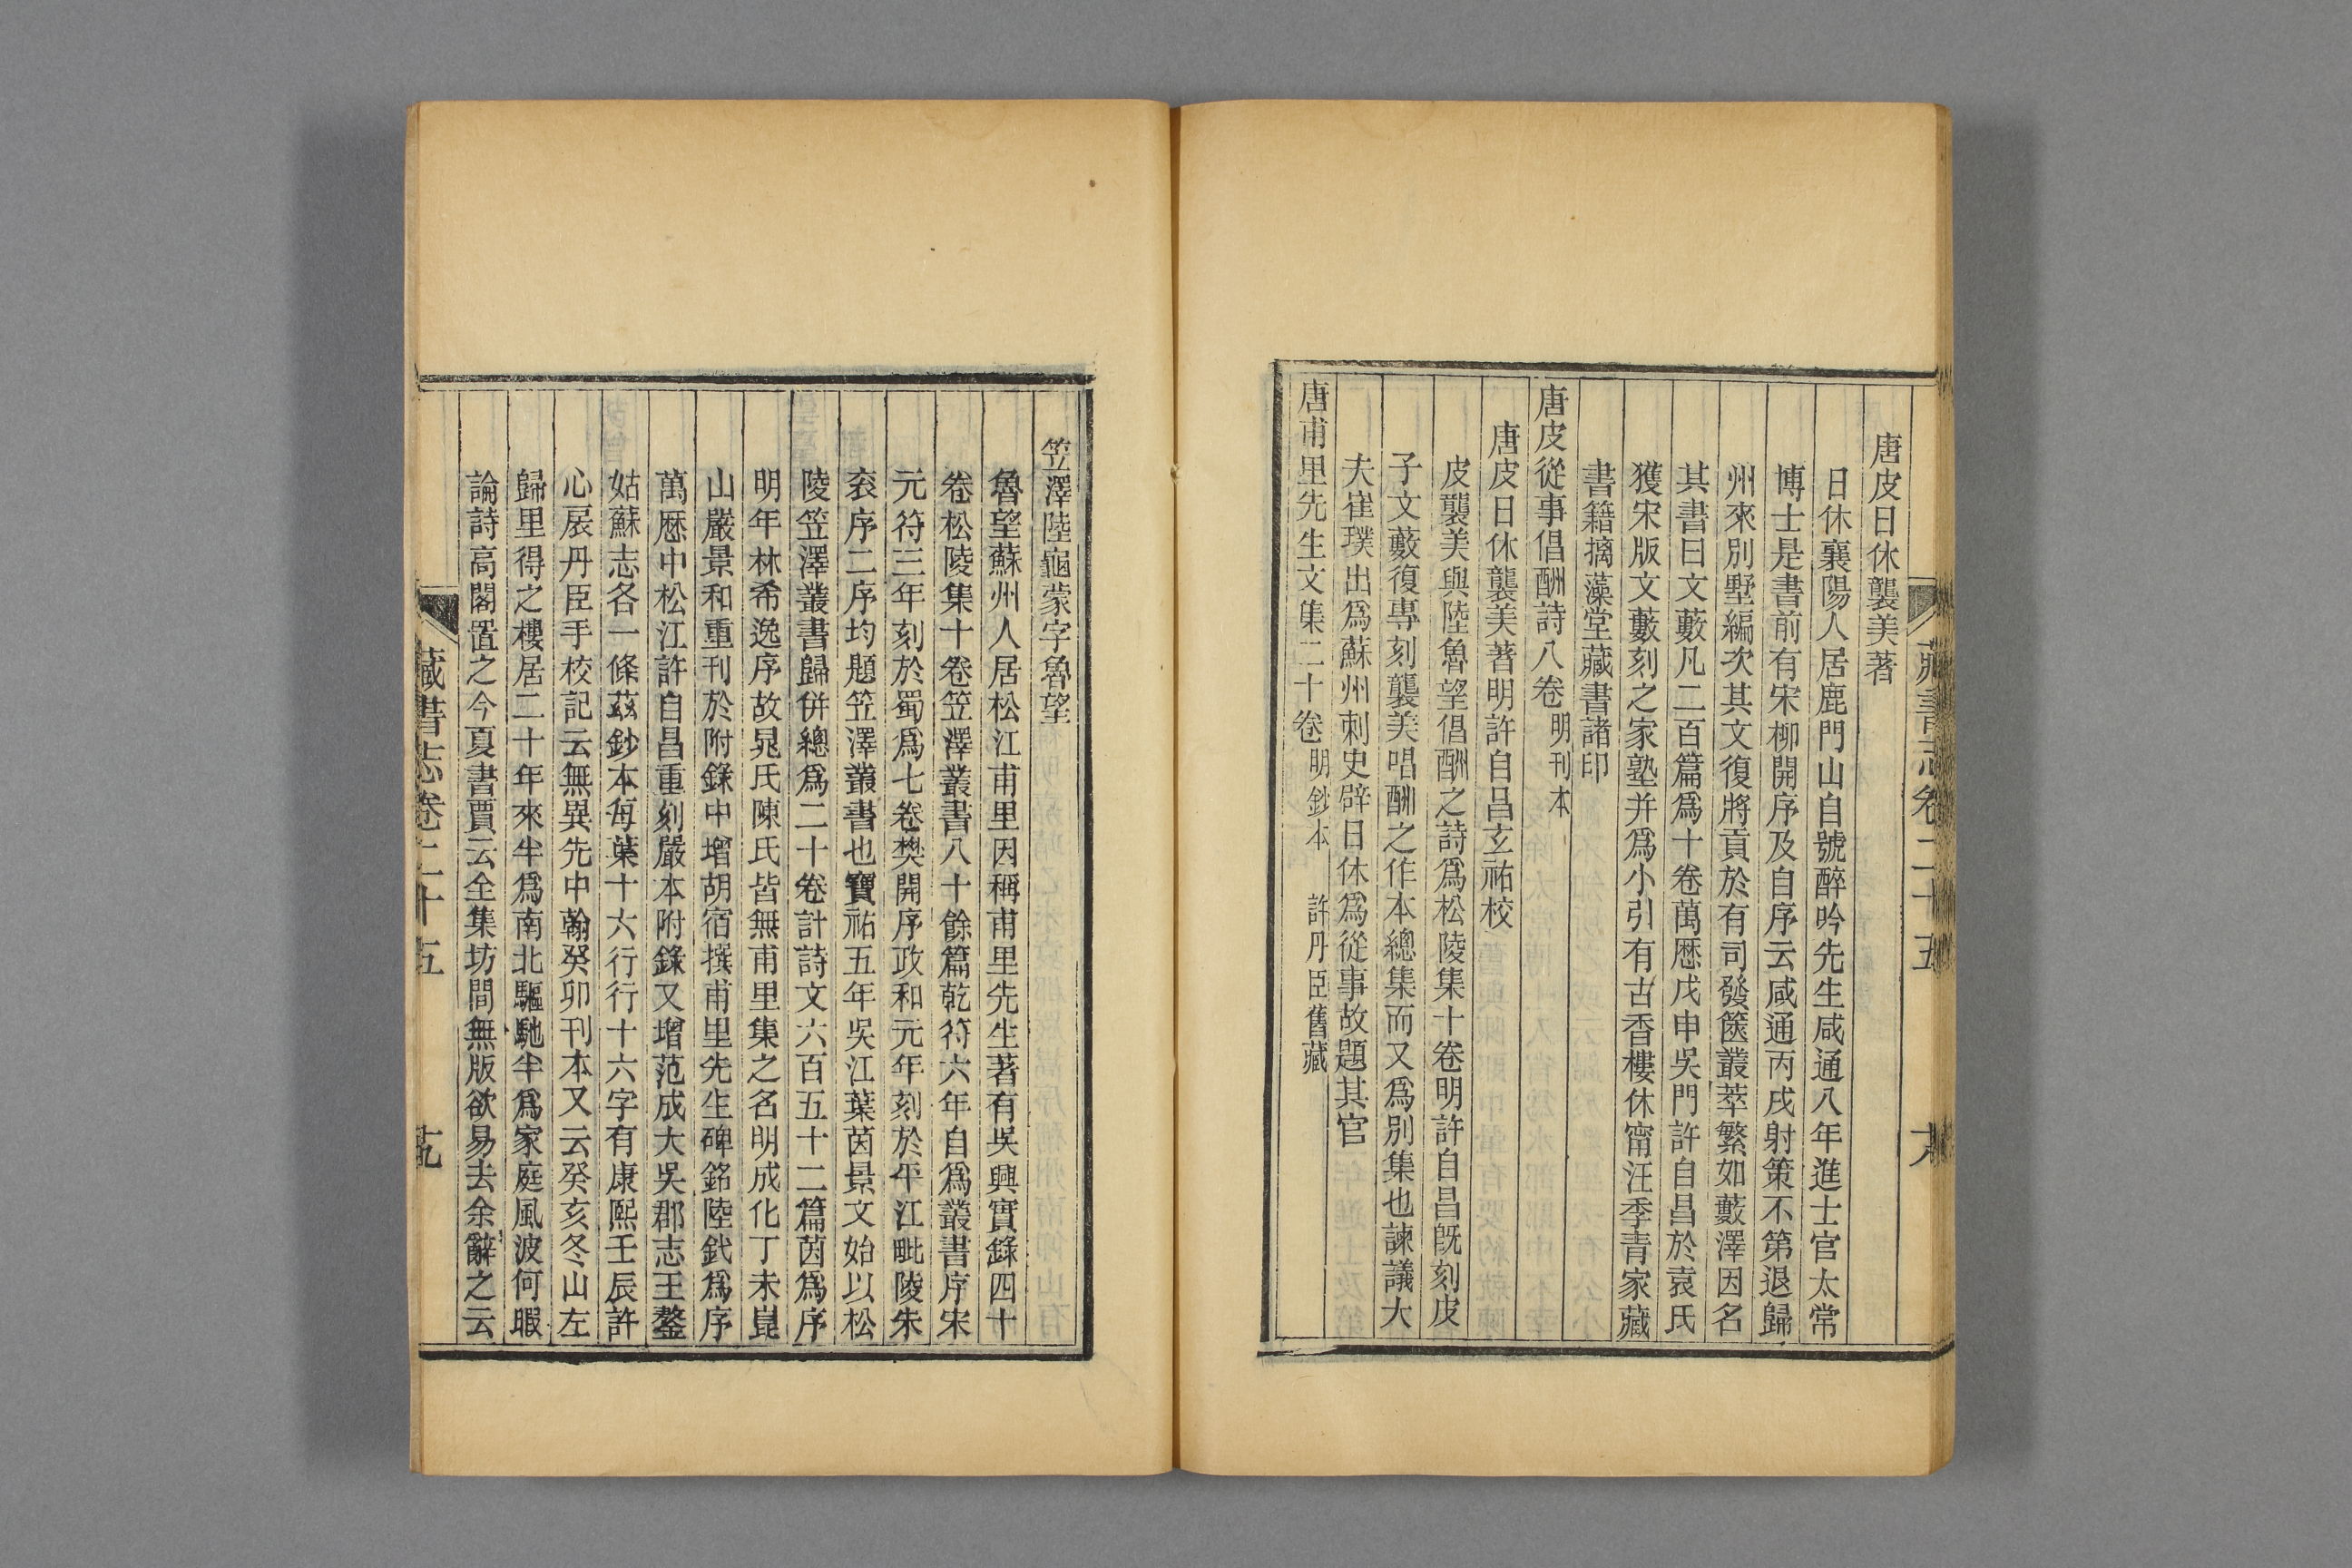 唐皮日休襲美著
日休襄陽人居鹿門山自號醉吟先生咸通八年進士官太常
博士是書前有宋柳開序及自序云咸通丙戌射策不第退歸
州來別墅編次其文復將貢於有司發篋叢萃繁如藪澤因名
其書曰文藪凡二百篇爲十卷萬歷戊申吳門許自昌於袁氏
獲宋版文藪刻之家塾并爲小引有古香樓休甯汪季青家藏
書籍摛藻堂藏書諸印
唐皮從事倡酬詩八卷 明刊本
唐皮日休襲美著明許自昌玄祐校
皮襲美與陸魯望倡酬之詩爲松陵集十卷明許自昌旣刻皮
子文藪復專刻襲美唱酬之作本總集而又爲別集也諫議大
夫崔璞出爲蘇州刺史辟日休爲從事故題其官
唐甫里先生文集二十卷 明鈔本 許丹臣舊藏
藏書志卷二十五
笠澤陸龜蒙字魯望
魯望蘇州人居松江甫里因稱甫里先生著有吳興實錄四十
卷松陵集十卷笠澤叢書八十餘篇乾符六年自爲叢書序宋
元符三年刻於蜀爲七卷樊開序政和元年刻於平江毗陵朱
衮序二序均題笠澤叢書也寶祐五年吳江葉茵景文始以松
陵笠澤叢書歸併總爲二十卷計詩文六百五十二篇茵爲序
明年林希逸序故晁氏陳氏皆無甫里集之名明成化丁未崑
山嚴景和重刊於附錄中增胡宿撰甫里先生碑銘陸釴爲序
萬歷中松江許自昌重刻嚴本附錄又增范成大吳郡志王鏊
姑蘇志各一條茲鈔本每葉十六行行十六字有康熙壬辰許
心扆丹臣手校記云無異先中翰癸卯刊本又云癸亥冬山左
歸里得之樓居二十年來半爲南北驅馳半爲家庭風波何暇
論詩高閣置之今夏書賈云全集坊間無版欲易去余辭之云
藏書志卷二十五